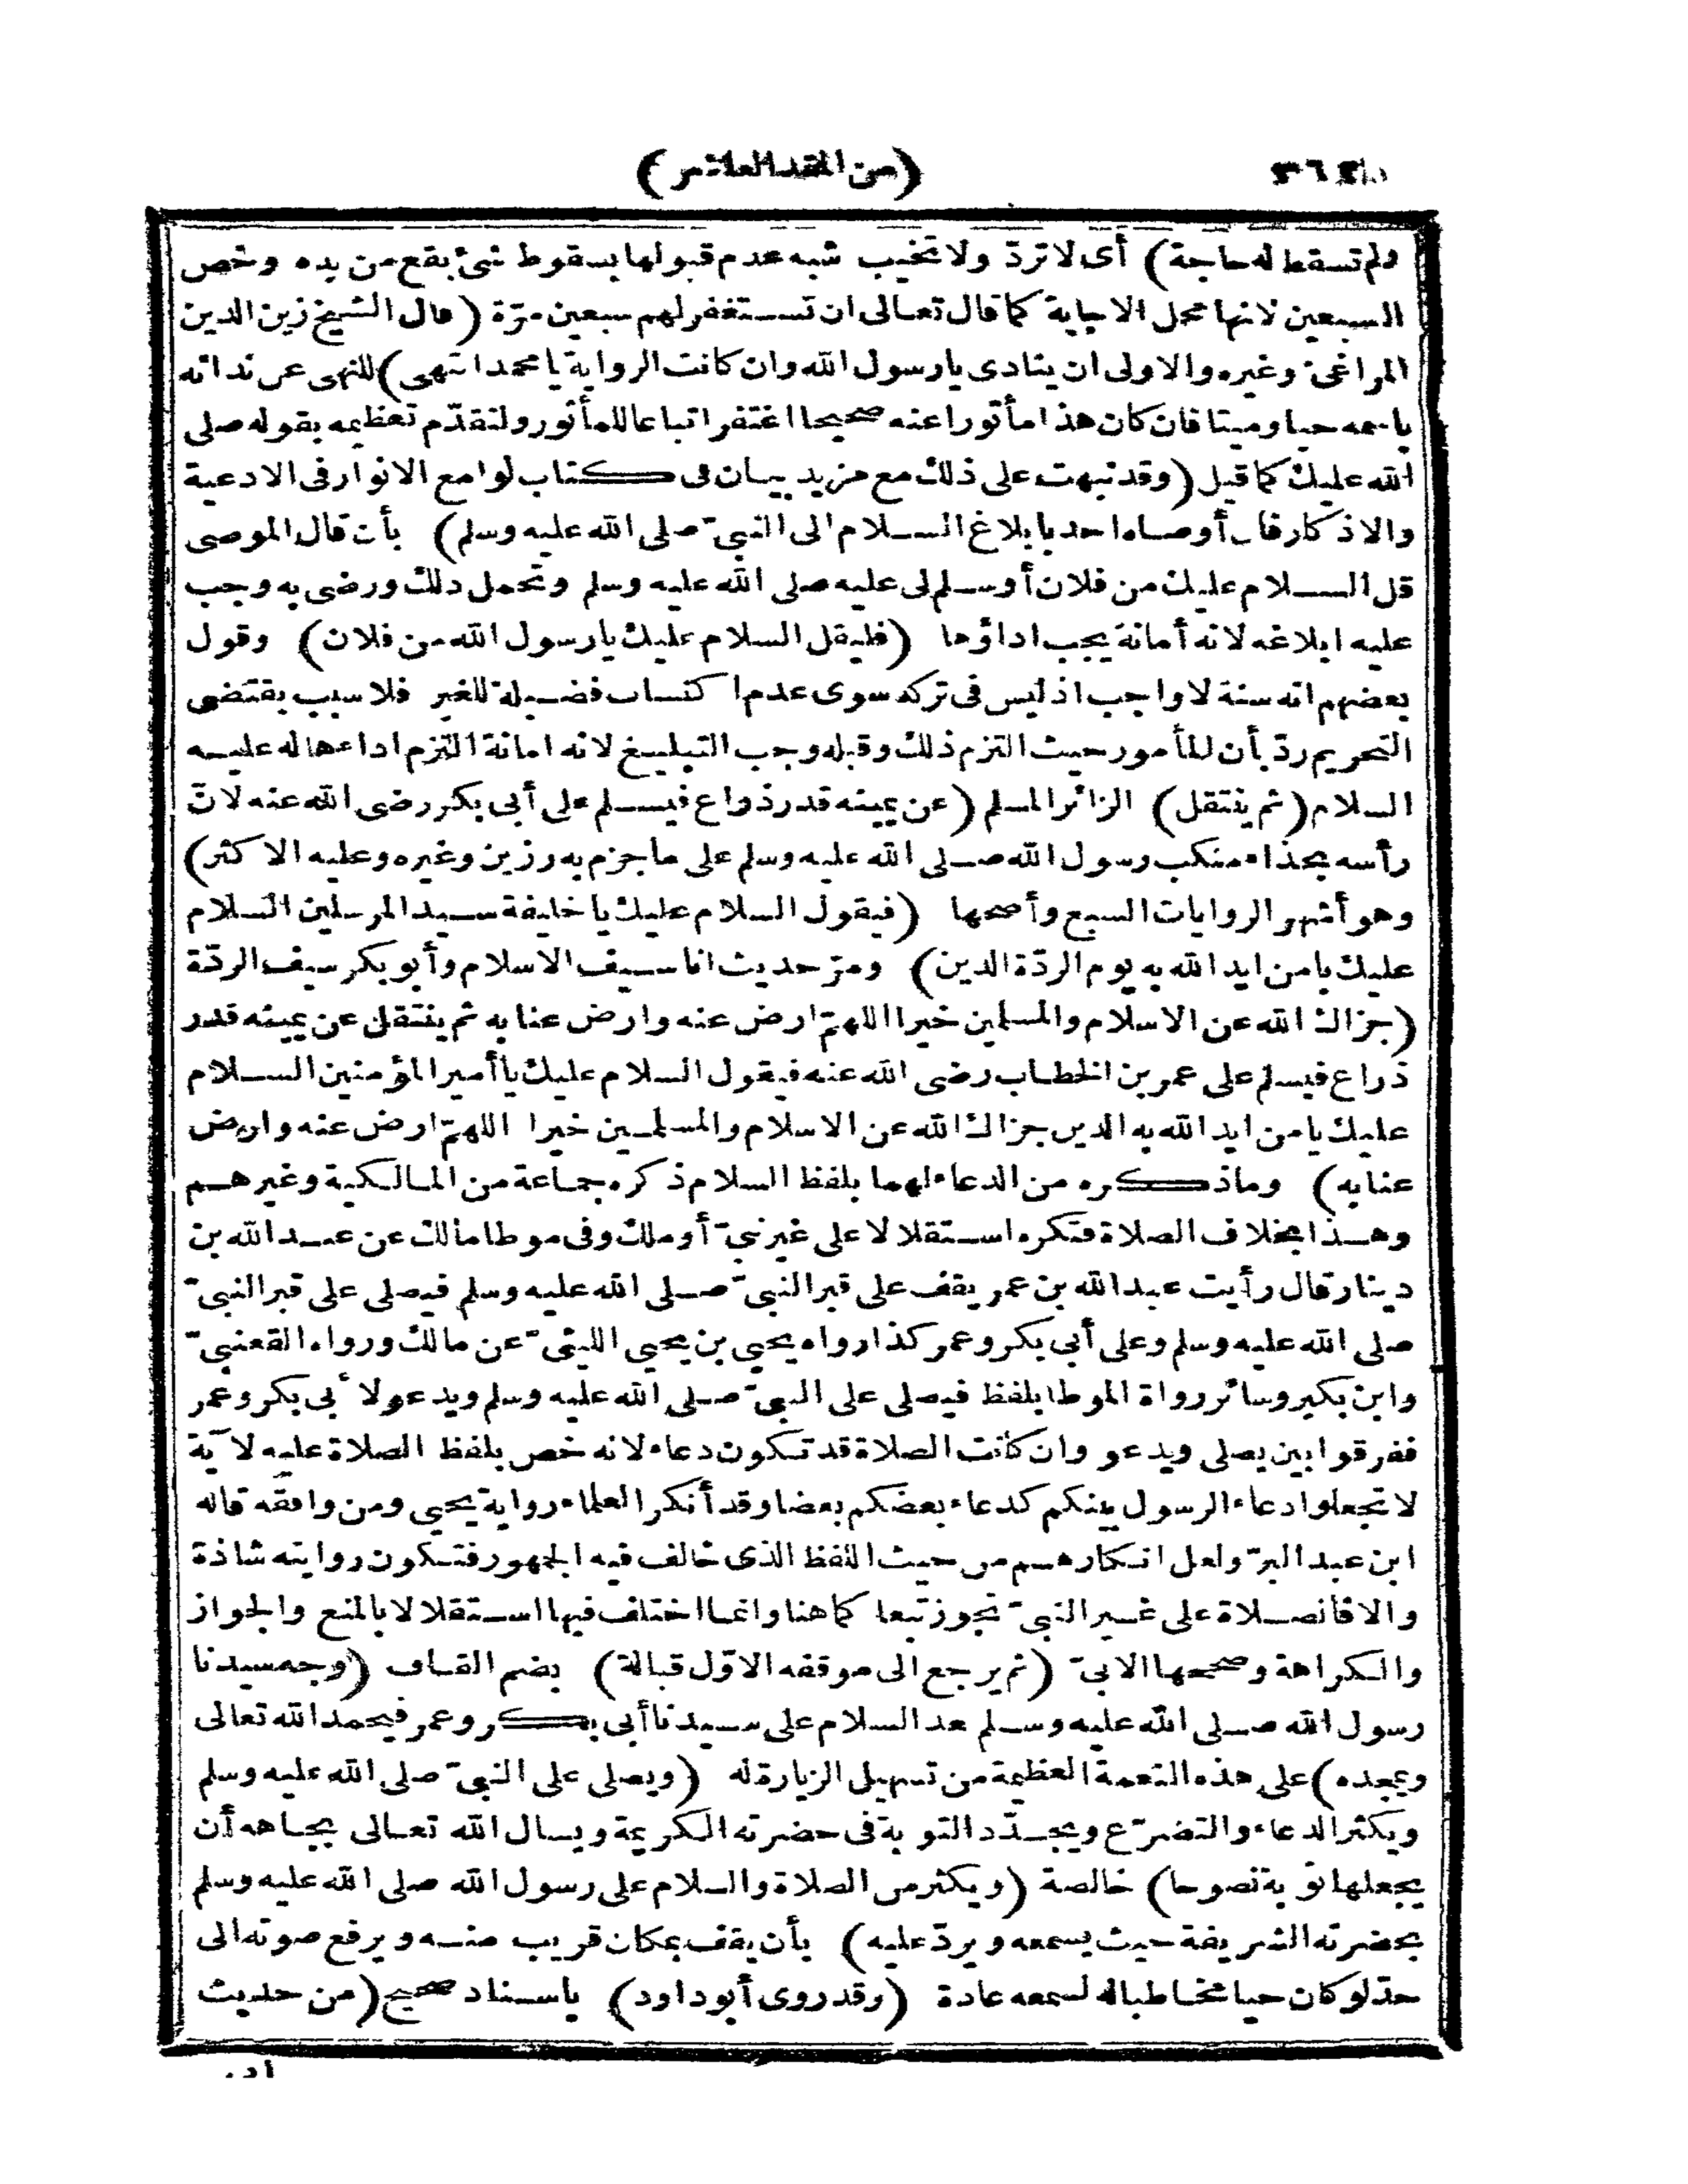 (من المقصد العاشر)
ولم تسقط له حاجة) أى لا تردّ ولا تخيب شبه عدم قبولها بسقوط شئ يقع من يده وخص
السبعين لانها محل الاجابة كما قال تعالى ان تستغفر لهم سبعين مرّة (قال الشيخ زين الدين
المراغى وغيره والاولى ان ينادى يا رسول الله وان كانت الرواية يا محمد انتهى) للنهى عن ندائه
باسمه حيا وميتا فان كان هذا مأثورا عنه صحيحا اغتفر اتباعا للمأثور ولتقدّم تعظيمه بقوله صلى
الله عليك كما قيل (وقد نبهت على ذلك مع مزيد بيان فى كتاب لوامع الانوار فى الادعية
والاذكار فان أوصاه احد بابلاغ السلام الى النبىّ صلى الله عليه وسلم) بأن قال الموصى
قل السلام عليك من فلان أو سلم لى عليه صلى الله عليه وسلم وتحمل ذلك ورضى به وجب
عليه ابلاغه لانه أمانة يجب اداؤها (فليقل السلام عليك يا رسول الله من فلان) وقول
بعضهم انه سنة لا واجب اذ ليس فى تركه سوى عدم اكتساب فضيلة للغير فلا سبب يقتضى
التحريم ردّ بأن المأمور حيث التزم ذلك وقبله وجب التبليغ لانه امانة التزم اداءها له عليه
السلام (ثم ينتقل) الزائر المسلم (عن يمينه قدر ذراع فيسلم على أبى بكر رضى الله عنه لانّ
رأسه بحذاء منكب رسول الله صلى الله عليه وسلم على ما جزم به رزين وغيره وعليه الاكثر)
وهو أشهر الروايات السبع وأصحها (فيقول السلام عليك يا خليفة سيد المرسلين السلام
عليك يا من ايد الله به يوم الردّة الدين) ومرّ حديث انا سيف الاسلام وأبو بكر سيف الردّة
(جزاك الله عن الاسلام والمسلمين خيرا اللهمّ ارض عنه وارض عنا به ثم ينتقل عن يمينه قدر
ذراع فيسلم على عمر بن الخطاب رضى الله عنه فيقول السلام عليك يا أمير المؤمنين السلام
عليك يا من ايد الله به الدين جزاك الله عن الاسلام والمسلمين خيرا اللهمّ ارض عنه وارض
عنا به) وما ذكره من الدعاء لهما بلفظ السلام ذكره جماعة من المالكية وغيرهم
وهذا بخلاف الصلاة فتكره استقلالا على غير نبىّ أو ملك وفى موطا مالك عن عبد الله بن
دينار قال رأيت عبد الله بن عمر يقف على قبر النبىّ صلى الله عليه وسلم فيصلى على قبر النبىّ
صلى الله عليه وسلم وعلى أبى بكر وعمر كذا رواه يحيى بن يحيى الليثىّ عن مالك ورواه القعنبىّ
وابن بكير وسائر رواة الموطا بلفظ فيصلى على النبىّ صلى الله عليه وسلم ويدعو لأبى بكر وعمر
ففرقوا بين يصلى ويدعو وان كانت الصلاة قد تكون دعاء لانه خص بلفظ الصلاة عليه لآية
لا تجعلوا دعاء الرسول بينكم كدعاء بعضكم بعضا وقد أنكر العلماء رواية يحيى ومن وافقه قاله
ابن عبد البرّ ولعل انكارهم من حيث اللفظ الذى خالف فيه الجمهور فتكون روايته شاذة
والا فالصلاة على غير النبىّ تجوز تبعا كما هنا وانما اختلف فيها استقلالا بالمنع والجواز
والكراهة وصححها الابىّ (ثم يرجع الى موقفه الاوّل قبالة) بضم القاف (وجه سيدنا
رسول الله صلى الله عليه وسلم بعد السلام على سيدنا أبى بكر وعمر فيحمد الله تعالى
ويمجده) على هذه النعمة العظيمة من تسهيل الزيارة له (ويصلى على النبىّ صلى الله عليه وسلم
ويكثر الدعاء والتضرّع ويجدّد التوبة فى حضرته الكريمة ويسال الله تعالى بجاهه أن
يجعلها توبة نصوحا) خالصة (ويكثر من الصلاة والسلام على رسول الله صلى الله عليه وسلم
بحضرته الشريفة حيث يسمعه ويردّ عليه) بأن يقف بمكان قريب منه ويرفع صوته الى
حدّ لو كان حيا مخاطبا له لسمعه عادة (وقد روى أبو داود) باسناد صحيح (من حديث